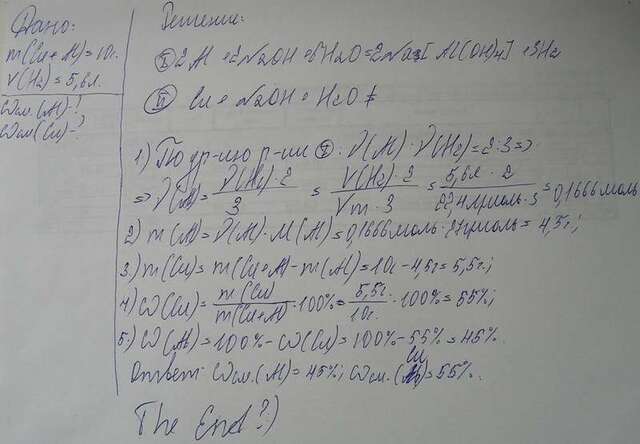 Дано:
m(Cu+Al)=10г.
V(H₂)=5,6л.
ωсм.(Al)-?
ωсм(Cu)-?
Решение:
Ⓘ 2Al+2NaOH+6H₂O=2Na[Al(OH)₄]+3H₂
Ⓘ Cu+NaOH+H₂O≠
1) По ур-ию р-ии Ⓘ: ν(Al):ν(H₂)=2:3=>
=>ν(Al)=ν(H₂)·2/3=V(H₂)·2/Vm·3=5,6л·2/22,4л/моль·3=0,1666моль
2) m(Al)=ν(Al)·M(Al)=0,1666моль·27г/моль=4,5г;
3) m(Cu)=m(Cu+Al)-m(Al)=10г-4,5г=5,5г;
4) ω(Cu)=m(Cu)/m(Cu+Al)·100%=5,5г/10г·100%=55%;
5) ω(Al)=100%-ω(Cu)=100%-55%=45%
Ответ: ωсм.(Al)=45%; ωсм.(Cu)=55%.
The End?:)